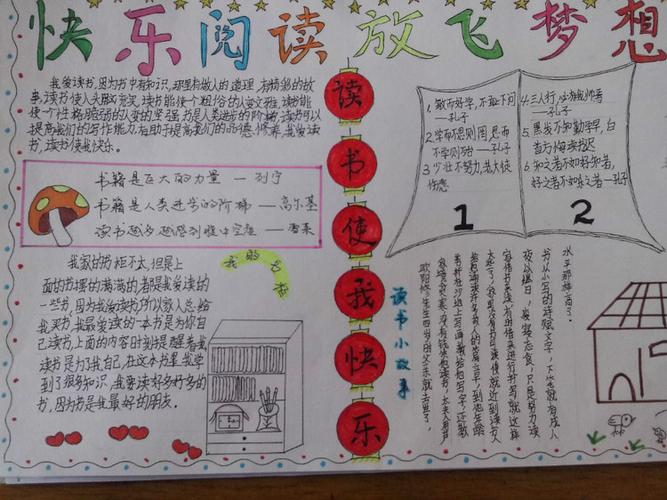 快乐阅读放飞梦想
我爱读书,因为书中有知识,那里有做人的道理,有精彩的故
事,读书使人头脑充实,读书能使个粗俗的人变文雅,读书能
使个性格脆弱的人变的坚强,书是人类进步的阶梯,读书可以
提高我们的写作能力,有助于提高我们的品德修养,我爱读
书,读书使我快乐。
书籍是巨大的力量 — 列宁
书籍是人类进步的阶梯 — 高尔基
读书越多越感到腹中空虚 — 雪莱
我的书柜
我家的书柜不大,但是上
面的书摆的满满的,都是我爱读的
一些书,因为我爱读书,所以家人总给
我买书,我最爱读的一本书是为你自
己读书,上面的内容时刻提醒着我
读书是为了我自己,在这本书里,我学
到了很多知识,我要读好多好多的
书,因为书是我最好的朋友。
读书使我快乐
1、敏而好学,不耻下问
—孔子
2、学而不思则罔,思而
不学则殆 —孔子
3、少壮不努力,老大徒
伤悲
1
4、三人行,必有我师焉
—孔子
5、黑发不知勤学早,白
首方悔读书迟
6、知之者不如好知者,
好之者不如乐之者 —孔子
2
读书小故事
欧阳修先生四岁时父亲就去世了,
家境贫寒,没有钱供他读书,太夫人用